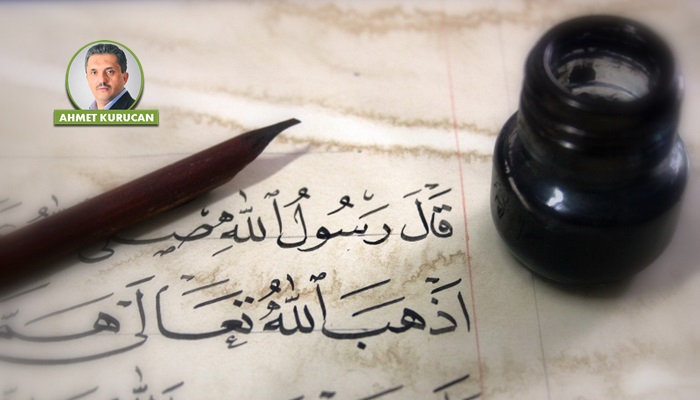 AHMET KURUCAN
قَالَ رَسُولُ ٱللّٰهِ صلى
اَذْهَبَ ٱللّٰهُ تَعَالَى